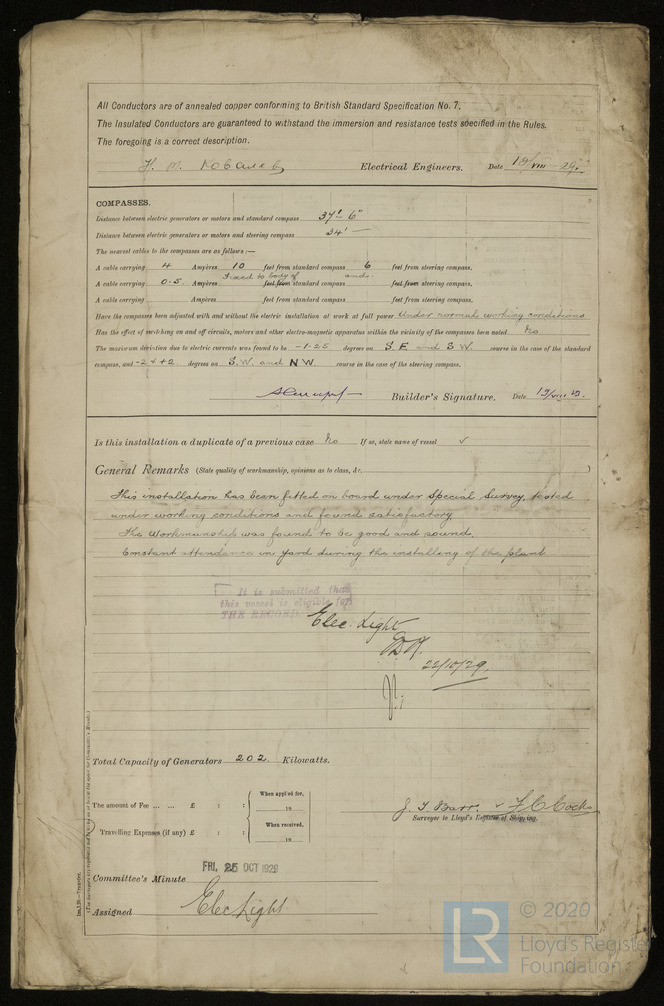 All Conductors are of annealed copper conforming to British Standard Specification No. 7.
The Insulated Conductors are guaranteed to withstand the immersion and resistance tests specified in the Rules.
The foregoing is a correct description.
H. M. Electrical Engineers. Date 19/VIII-29.
COMPASSES.
Distance between electric generators or motors and standard compass 37'-6"
Distance between electric generators or motors and steering compass 34'-
The nearest cables to the compasses are as follows:—
A cable carrying 4 Ampères 10 feet from standard compass 6 feet from steering compass.
A cable carrying 0.5 Ampères Fixed to body of feet from standard compass and feet from steering compass.
A cable carrying Ampères feet from standard compass feet from steering compass.
Have the compasses been adjusted with and without the electric installation at work at full power Under normal working conditions
Has the effect of switching on and off circuits, motors and other electro-magnetic apparatus within the vicinity of the compasses been noted No
The maximum deviation due to electric currents was found to be -1.25 degrees on S.E. and S.W. course in the case of the standard
compass, and -2 & +2 degrees on S.W. and N.W. course in the case of the steering compass.
Builder's Signature. Date 19/VIII 29.
Is this installation a duplicate of a previous case No If so, state name of vessel ✓
General Remarks (State quality of workmanship, opinions as to class, &c. )
This installation has been fitted on board under Special Survey, tested
under working conditions and found satisfactory.
The Workmanship was found to be good and sound.
Constant attendance in yard during the installing of the plant
It is submitted that
this vessel is eligible for
THE RECORD Elec. Light
22/10/29
Total Capacity of Generators 202 Kilowatts.
The amount of Fee ... ... £ : :
When applied for,
19
Travelling Expenses (if any) £ : :
When received,
19
J. T. Barr. & F. C. Cocks
Surveyor to Lloyd's Register of Shipping.
FRI. 25 OCT 1929
Committee's Minute
Assigned Elec Light
Im.1.28.—Transfer.
LR © 2020
Lloyd's Register
Foundation